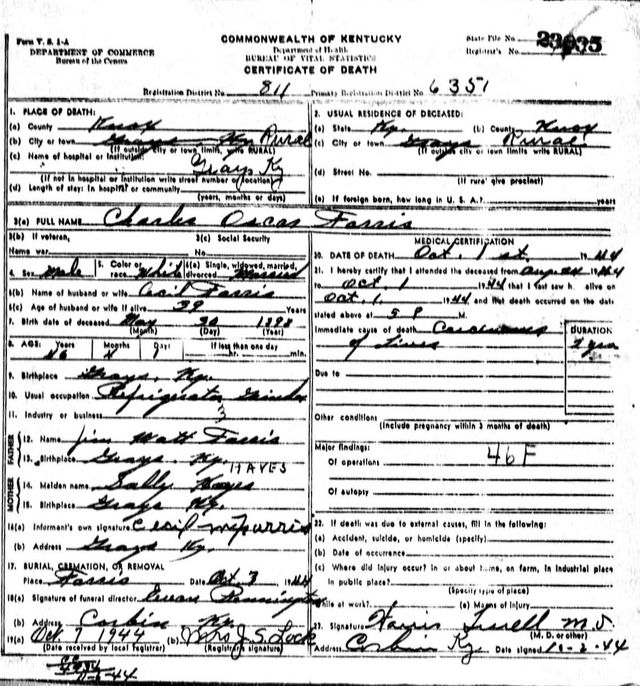 Form V. S. 1-A
DEPARTMENT OF COMMERCE
Bureau of the Census
COMMONWEALTH OF KENTUCKY
Department of Health
BUREAU OF VITAL STATISTICS
CERTIFICATE OF DEATH
State File No.
Registrar's No.
Registration District No. 811 Primary Registration District No. 6351
1. PLACE OF DEATH:
(a) County Knox
(b) City or town Grays Ky Rural
(If outside city or town limits, write RURAL)
(c) Name of hospital or institution: Grays Ky
(If not in hospital or institution write street number or location)
(d) Length of stay: In hospital or community
(years, months or days)
2. USUAL RESIDENCE OF DECEASED:
(a) State Ky. (b) County Knox
(c) City or town Grays Rural
(If outside city or town limits write RURAL)
(d) Street No.
(If rural give precinct)
(e) If foreign born, how long in U. S. A.? years
3(a) FULL NAME Charles Oscar Farris
3(b) If veteran, 3(c) Social Security
Name war No.
4. Sex Male 5. Color or race White 6(a) Single, widowed, married, divorced Married
6(b) Name of husband or wife Cecil Farris
6(c) Age of husband or wife if alive 39 Years
7. Birth date of deceased May 30 1898
(Month) (Day) (Year)
8. AGE: Years Months Days If less than one day
46 4 hr. min.
9. Birthplace Grays, Ky.
10. Usual occupation Refrigerator
11. Industry or business 3
FATHER
12. Name Jim Matt Farris
13. Birthplace Grays Ky.
HAYES
MOTHER
14. Maiden name Sally Hayes
15. Birthplace Grays Ky.
16(a) Informant's own signature Cecil M Farris
(b) Address Grays Ky.
17. BURIAL, CREMATION, OR REMOVAL
Place Farris Date Oct 3 1944
18(a) Signature of funeral director Pennington
(b) Address Corbin Ky.
19(a) Oct. 7 1944 (b) Mrs J. S. Lock
(Date received by local registrar) (Registrar's signature)
MEDICAL CERTIFICATION
20. DATE OF DEATH Oct. 1 st. 1944
21. I hereby certify that I attended the deceased from Aug 24 1944
to Oct 1 1944 that I last saw h alive on
Oct. 1 1944 and that death occurred on the date
stated above at 5 P M.
Immediate cause of death Carcinoma
of Liver
DURATION
2 yrs
Due to
Other conditions
(Include pregnancy within 3 months of death)
Major findings:
Of operations 46 F
Of autopsy
22. If death was due to external causes, fill in the following:
(a) Accident, suicide, or homicide (specify)
(b) Date of occurrence
(c) Where did injury occur? in or about home, on farm, in industrial place
in public place?
(Specify type of place)
While at work? (e) Means of injury
23. Signature M. D.
(M. D. or other)
Address Corbin Ky. Date signed 10-2-44